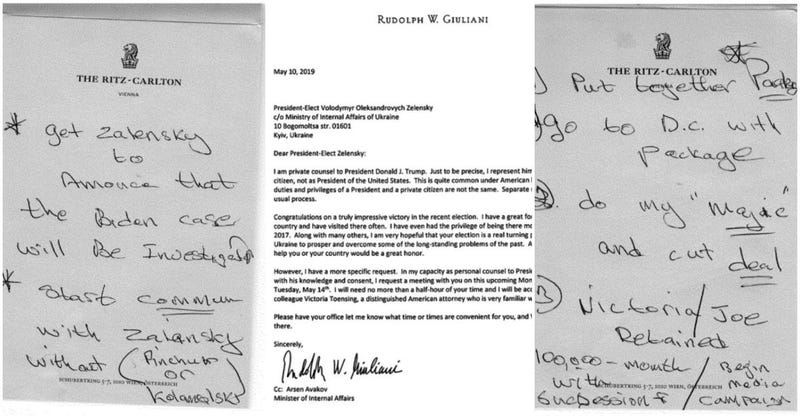 THE RITZ-CARLTON
VIENNA
* get Zalensky
to
Annouce that
the Biden case
will Be Investigated
* start commun
with Zalansky
without (Pinchuk
or
SCHUBERTRING 5-7, 1010 WIEN, ÖSTERREICH
Kolamoisky
RUDOLPH W. GIULIANI
May 10, 2019
President-Elect Volodymyr Oleksandrovych Zelensky
c/o Ministry of Internal Affairs of Ukraine
10 Bogomoltsa str. 01601
Kyiv, Ukraine
Dear President-Elect Zelensky:
I am private counsel to President Donald J. Trump. Just to be precise, I represent him
citizen, not as President of the United States. This is quite common under American
duties and privileges of a President and a private citizen are not the same. Separate
usual process.
Congratulations on a truly impressive victory in the recent election. I have a great fo
country and have visited there often. I have even had the privilege of being there mo
2017. Along with many others, I am very hopeful that your election is a real turning
Ukraine to prosper and overcome some of the long-standing problems of the past. A
help you or your country would be a great honor.
However, I have a more specific request. In my capacity as personal counsel to Presi
with his knowledge and consent, I request a meeting with you on this upcoming Mon
Tuesday, May 14th. I will need no more than a half-hour of your time and I will be acc
colleague Victoria Toensing, a distinguished American attorney who is very familiar w
Please have your office let me know what time or times are convenient for you, and
there.
Sincerely,
Rudolph W. Giuliani
Cc: Arsen Avakov
Minister of Internal Affairs
THE RITZ-CARLTON
) Put together Packa
) go to D.C. with
package
2. do my "majic"
and cut deal
3) Victoria/Joe
Retained
100,000- month / Begin
SCHUBERTRING 5-7, 1010 WIEN, ÖSTERREICH
with / media
Sucsession / campaign